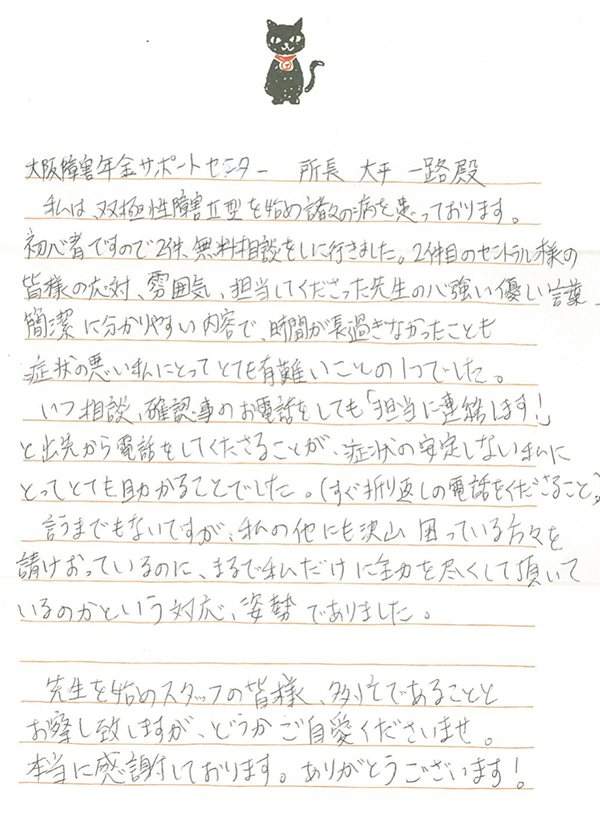 大阪障害年金サポートセンター 所長 大平 一路殿
私は、双極性障害Ⅱ型を始め諸々の病を患っております。
初心者ですので2件、無料相談をしに行きました。2件目のセントラル様の
皆様の応対、雰囲気、担当してくださった先生の心強い優しい言葉、
簡潔に分かりやすい内容で、時間が長過ぎなかったことも
症状の悪い私にとってとても有難いことの1つでした。
いつ相談、確認事のお電話をしても「担当に連絡します!」
と出先から電話をしてくださることが、症状の安定しない私に
とってとても助かることでした。(すぐ折り返しの電話をくださること)
言うまでもないですが、私の他にも沢山困っている方々を
請けおっているのに、まるで私だけに全力を尽くして頂いて
いるのかという対応、姿勢でありました。
先生を始めスタッフの皆様、多忙であることと
お察し致しますが、どうかご自愛くださいませ。
本当に感謝しております。ありがとうございます!